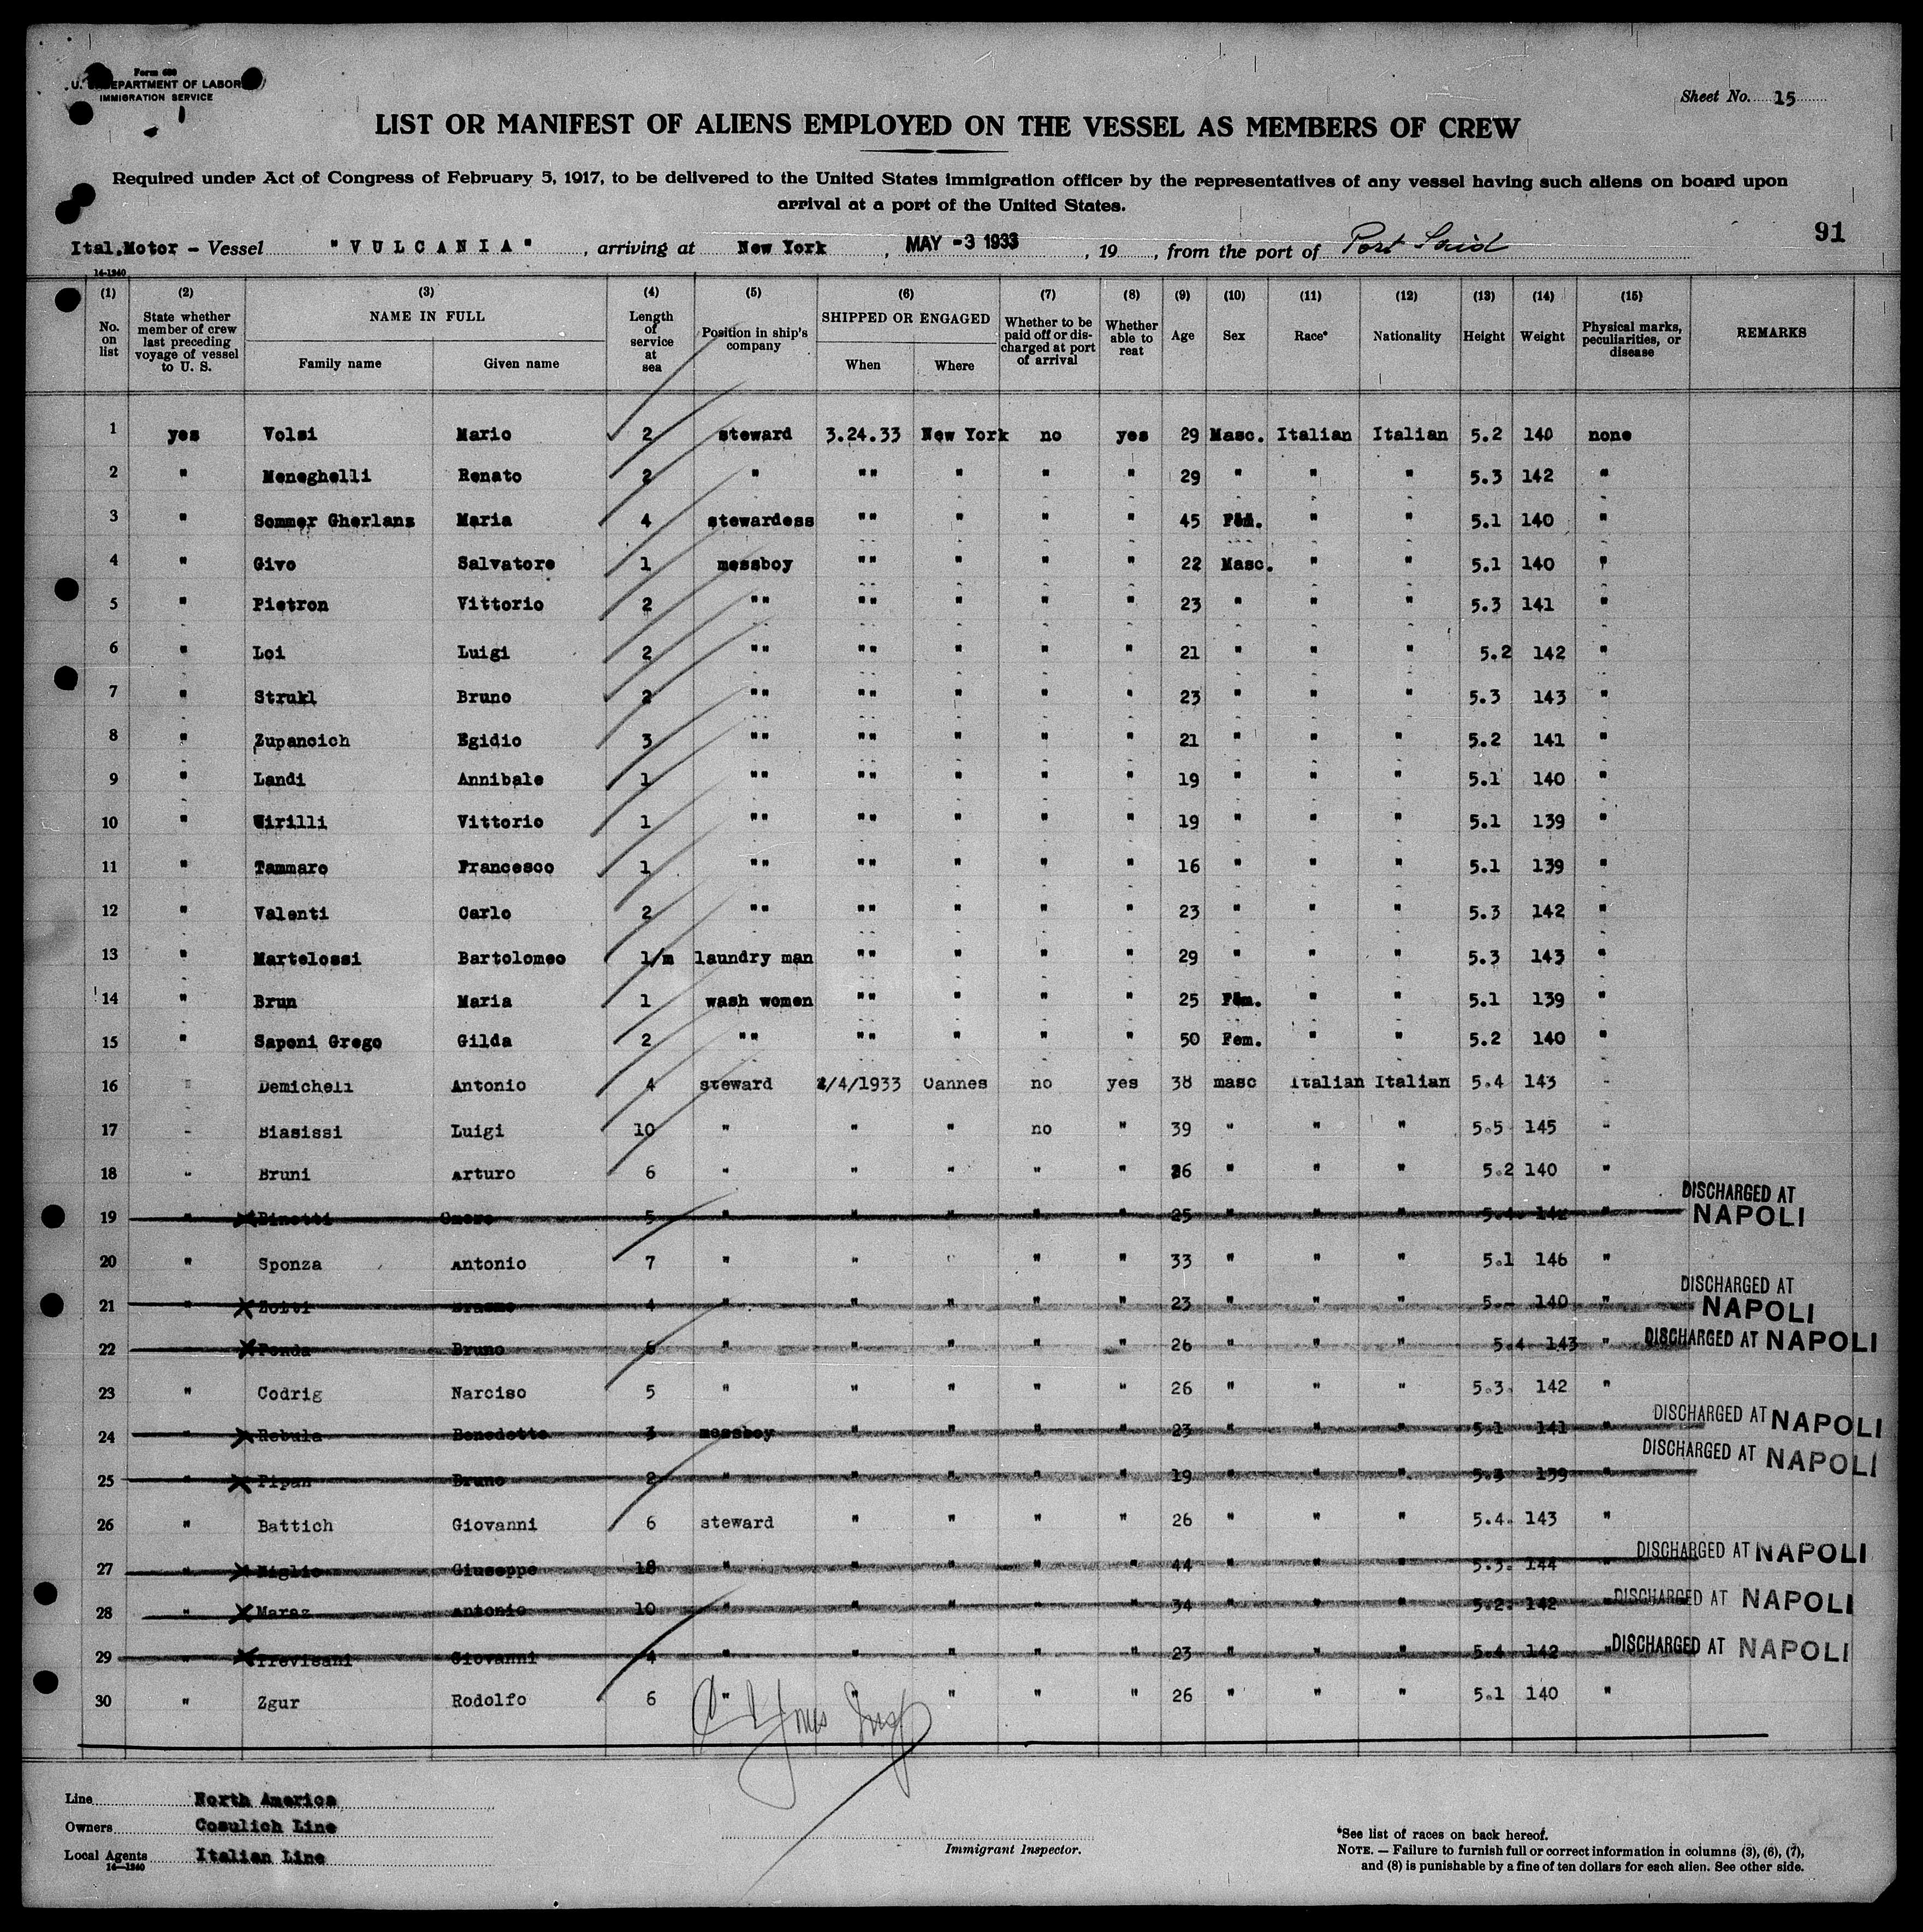 Form 680
U. S. DEPARTMENT OF LABOR
IMMIGRATION SERVICE
Sheet No. 15
LIST OR MANIFEST OF ALIENS EMPLOYED ON THE VESSEL AS MEMBERS OF CREW
Required under Act of Congress of February 5, 1917, to be delivered to the United States immigration officer by the representatives of any vessel having such aliens on board upon
arrival at a port of the United States.
91
Ital.Motor - Vessel "VULCANIA", arriving at New York, MAY -3 1933, 19, from the port of Port Said
14-1240
(1) (2) (3) (4) (5) (6) (7) (8) (9) (10) (11) (12) (13) (14) (15)
No. on list State whether member of crew last preceding voyage of vessel to U. S. NAME IN FULL Family name Given name Length of service at sea Position in ship's company SHIPPED OR ENGAGED When Where Whether to be paid off or discharged at port of arrival Whether able to reat Age Sex Race* Nationality Height Weight Physical marks, peculiarities, or disease REMARKS
1 yes Volsi Mario 2 steward 3.24.33 New York no yes 29 Masc. Italian Italian 5.2 140 none
2 " Meneghelli Renato 2 " "" " " " 29 " " " 5.3 142 "
3 " Sommer Gherlanz Maria 4 stewardess "" " " " 45 Fem. " " 5.1 140 "
4 " Givo Salvatore 1 messboy "" " " " 22 Masc. " " 5.1 140 "
5 " Pietron Vittorio 2 "" "" " " " 23 " " " 5.3 141 "
6 " Loi Luigi 2 "" "" " " " 21 " " " 5.2 142 "
7 " Strukl Bruno 2 "" "" " " " 23 " " " 5.3 143 "
8 " Zupancich Egidio 3 "" "" " " " 21 " " " 5.2 141 "
9 " Landi Annibale 1 "" "" " " " 19 " " " 5.1 140 "
10 " Wirilli Vittorio 1 "" "" " " " 19 " " " 5.1 139 "
11 " Tammaro Francesco 1 "" "" " " " 16 " " " 5.1 139 "
12 " Valenti Carlo 2 "" "" " " " 23 " " " 5.3 142 "
13 " Martelossi Bartolomeo 1/m laundry man "" " " " 29 " " " 5.3 143 "
14 " Brun Maria 1 wash women "" " " " 25 Fem. " " 5.1 139 "
15 " Saponi Grego Gilda 2 "" "" " " " 50 Fem. " " 5.2 140 "
16 " Demicheli Antonio 4 steward 2/4/1933 Cannes no yes 38 masc Italian Italian 5.4 143 "
17 " Biasissi Luigi 10 " " " no " 39 " " " 5.5 145 "
18 " Bruni Arturo 6 " " " " " 26 " " " 5.2 140 "
19 " Binetti Omero 5 " " " " " 25 " " " 5.4 142 " DISCHARGED AT NAPOLI
20 " Sponza Antonio 7 " " " " " 33 " " " 5.1 146 "
21 " Erasmo 4 " " " " " 23 " " " 5.- 140 " DISCHARGED AT NAPOLI
22 Fonda Bruno 6 " " " " " 26 " " " 5.4 143 " DISCHARGED AT NAPOLI
23 " Codrig Narciso 5 " " " " " 26 " " " 5.3. 142 "
24 " Rebula Benedetto 3 messboy " " " " 23 " " " 5.1 141 " DISCHARGED AT NAPOLI
25 " Pipan Bruno 2 " " " " " 19 " " " 5.3 139 " DISCHARGED AT NAPOLI
26 " Battich Giovanni 6 steward " " " " 26 " " " 5.4. 143 "
27 " Miglio Giuseppe 18 " " " " " 44 " " " 5.3. 144 " DISCHARGED AT NAPOLI
28 " Maraz Antonio 10 " " " " " 34 " " " 5.2. 142 " DISCHARGED AT NAPOLI
29 " Trevisani Giovanni 4 " " " " " 23 " " " 5.4 142 " DISCHARGED AT NAPOLI
30 " Zgur Rodolfo 6 " " " " " 26 " " " 5.1 140 "
Line North America
Owners Cosulich Line
Local Agents Italian Line
14-1240
Immigrant Inspector.
*See list of races on back hereof.
NOTE. — Failure to furnish full or correct information in columns (3), (6), (7),
and (8) is punishable by a fine of ten dollars for each alien. See other side.